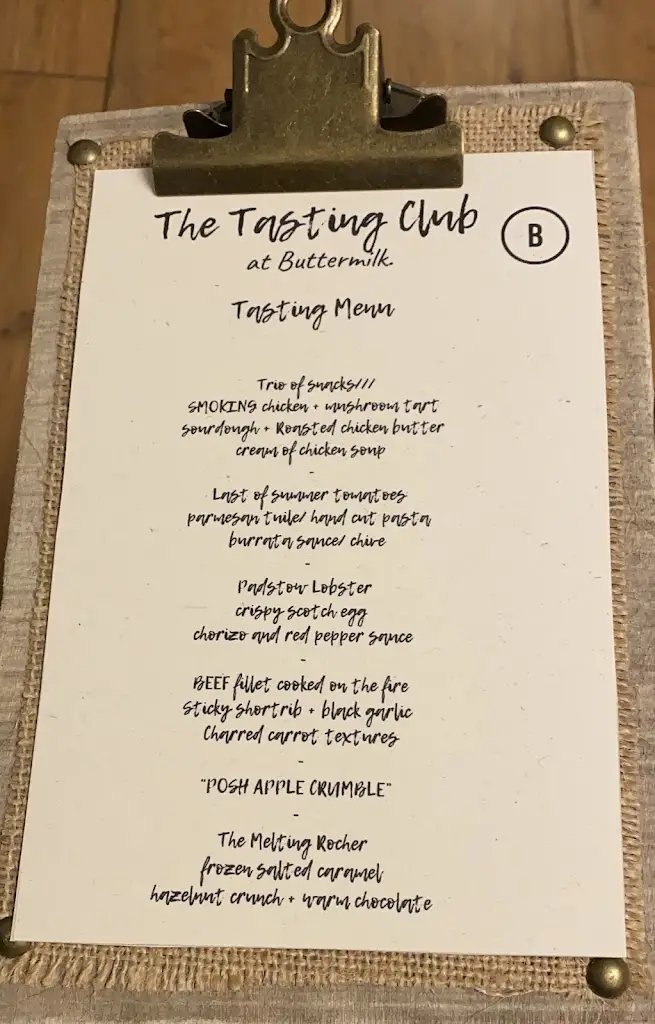 The Tasting Club
B
at Buttermilk.
Tasting Menu
Trio of snacks///
SMOKING chicken + mushroom tart
sourdough + Roasted chicken butter
cream of chicken soup
-
Last of summer tomatoes
parmesan tuile/ hand cut pasta
burrata sauce/ chive
-
Padstow Lobster
crispy scotch egg
chorizo and red pepper sauce
-
BEEF fillet cooked on the fire
Sticky shortrib + black garlic
Charred carrot textures
-
"POSH APPLE CRUMBLE"
-
The Melting Rocher
frozen salted caramel
hazelnut crunch + warm chocolate